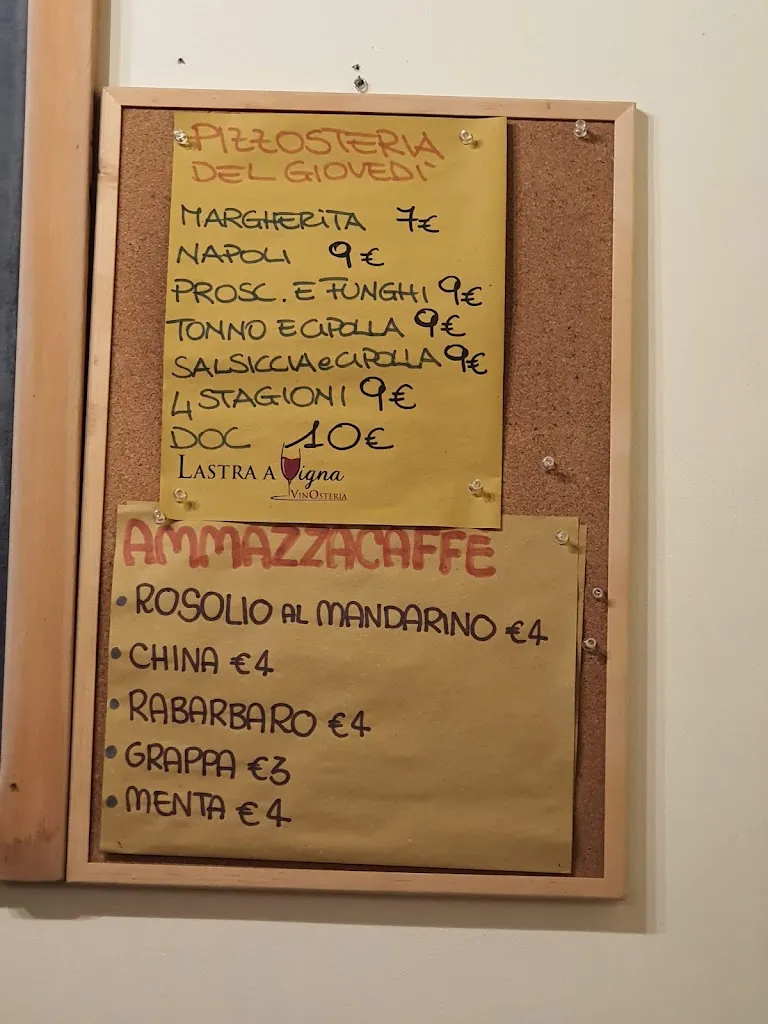 PIZZOSTERIA
DEL GIOVEDÌ
MARGHERITA 7€
NAPOLI 9€
PROSC. E FUNGHI 9€
TONNO E CIPOLLA 9€
SALSICCIA e CIPOLLA 9€
4 STAGIONI 9€
DOC 10€
LASTRA A Vigna
VINOSTERIA
AMMAZZACAFFE
• ROSOLIO AL MANDARINO €4
• CHINA €4
• RABARBARO €4
• GRAPPA €3
• MENTA €4